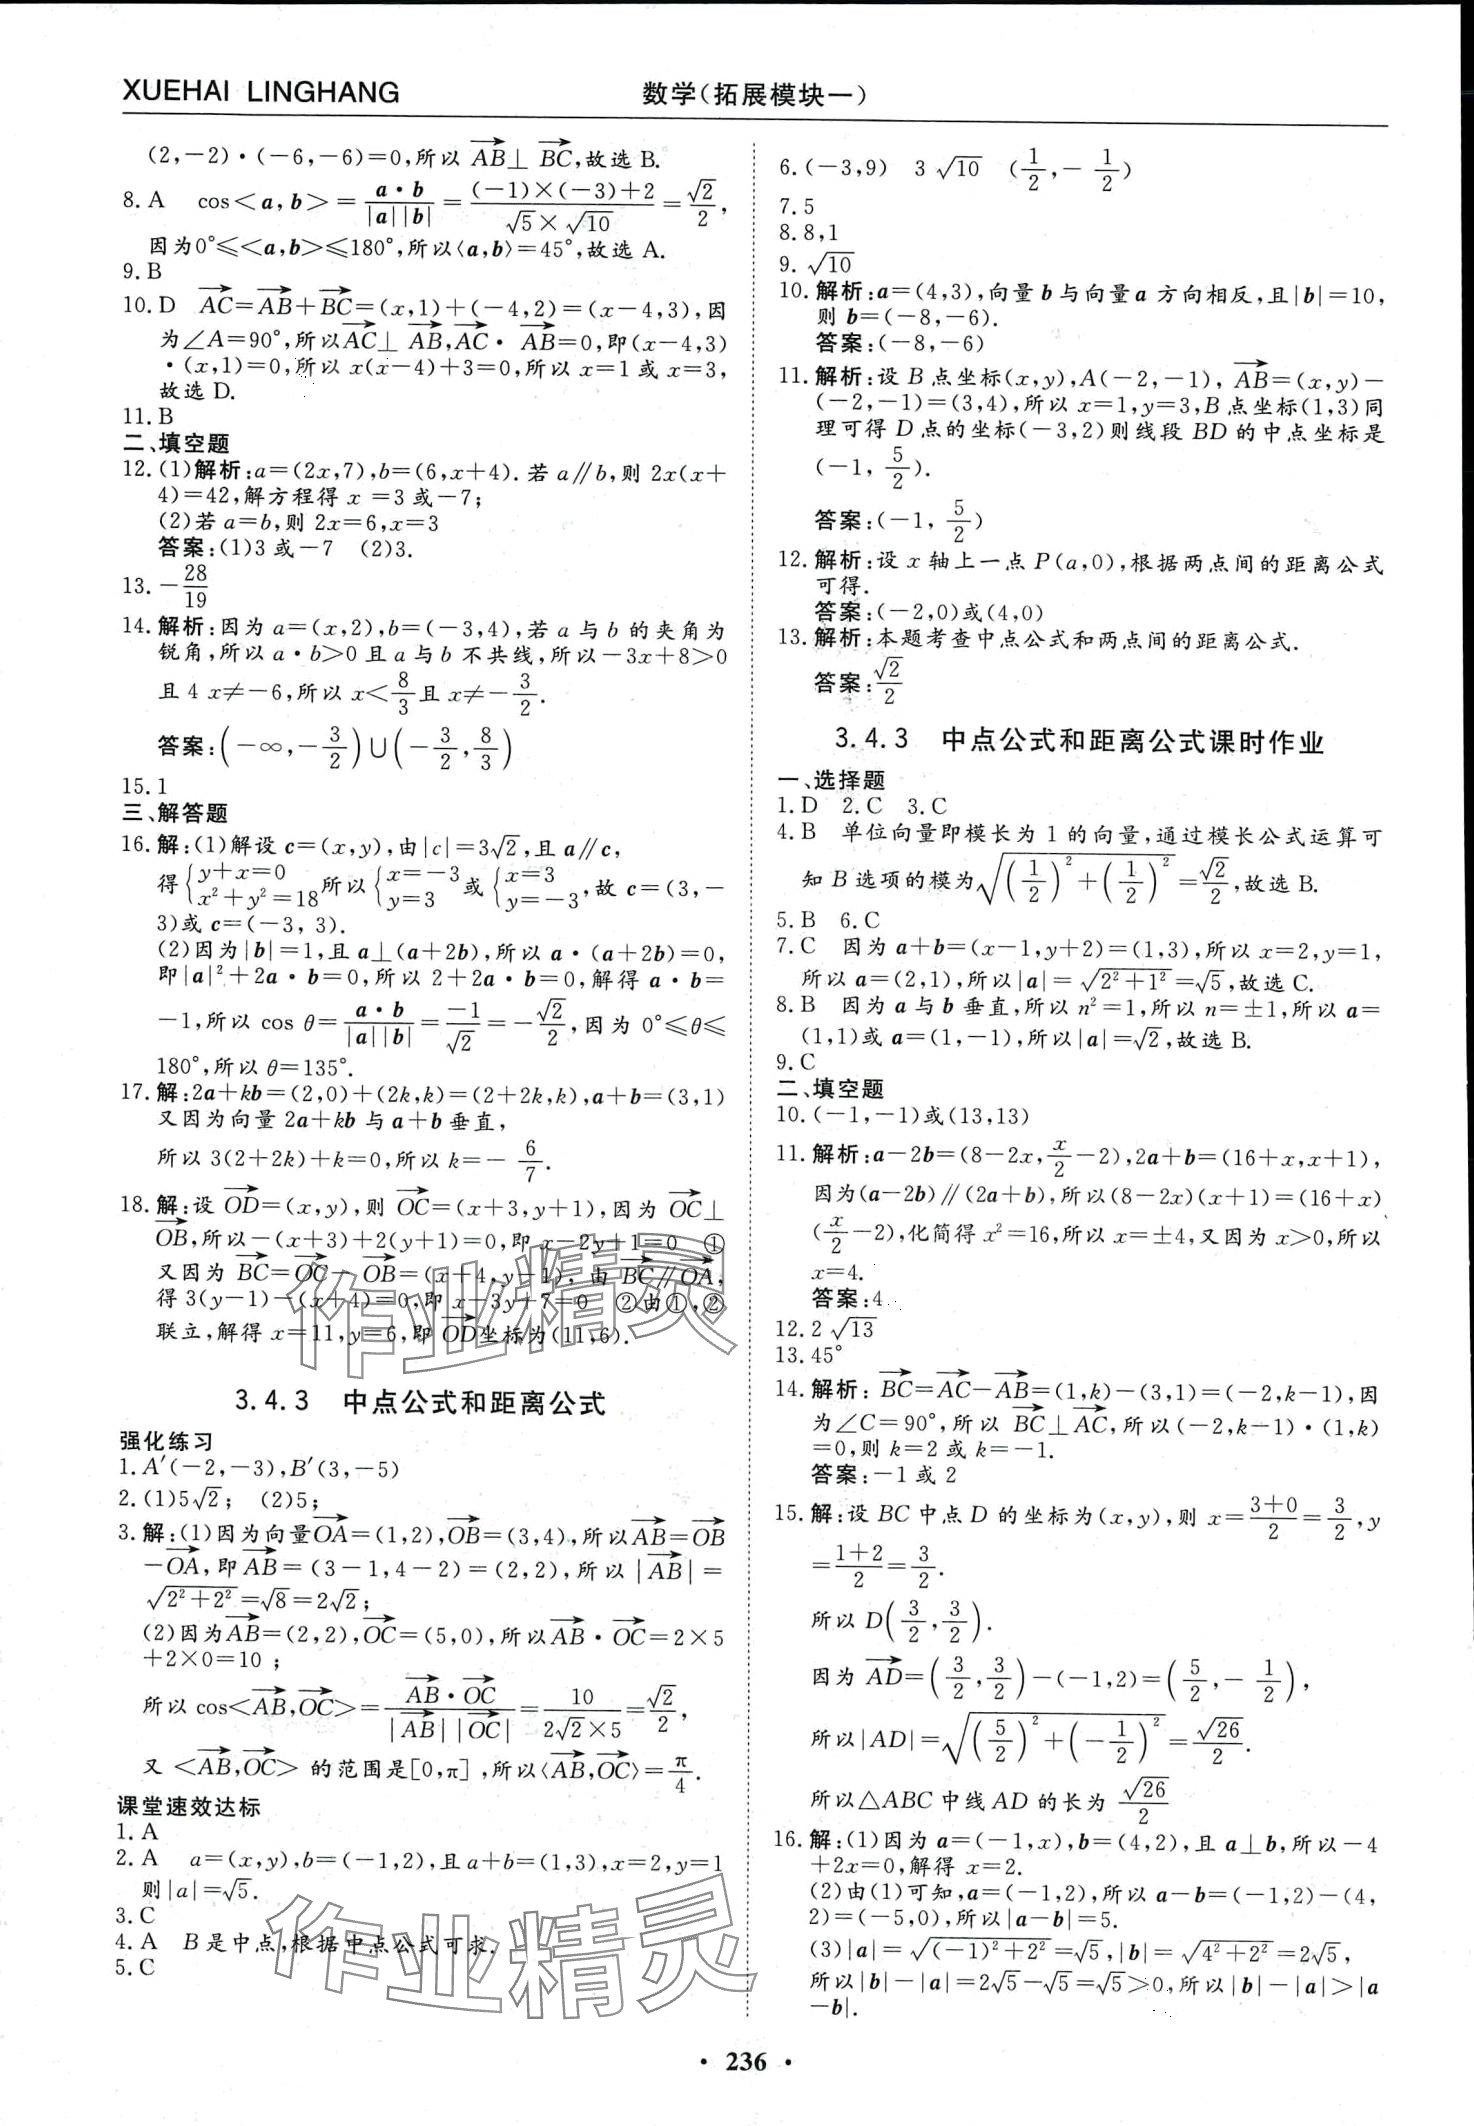 XUEHAI LINGHANG
数学(拓展模块一)
(2,-2)·(-6,-6)=0,所以 $\overrightarrow{AB}$⊥ $\overrightarrow{BC}$,故选 B.
8. A cos<a,b>=$\frac{a·b}{|a||b|}$=$\frac{(-1)×(-3)+2}{\sqrt{5}×\sqrt{10}}$=$\frac{\sqrt{2}}{2}$,
因为0°≤<a,b>≤180°,所以⟨a,b⟩=45°,故选 A.
9. B
10. D $\overrightarrow{AC}$=$\overrightarrow{AB}$+$\overrightarrow{BC}$=(x,1)+(-4,2)=(x-4,3),因
为∠A=90°,所以$\overrightarrow{AC}$⊥ $\overrightarrow{AB}$,$\overrightarrow{AC}$· $\overrightarrow{AB}$=0,即(x-4,3)
·(x,1)=0,所以 x(x-4)+3=0,所以 x=1 或 x=3,
故选 D.
11. B
二、填空题
12. (1)解析:a=(2x,7),b=(6,x+4).若 a∥b,则 2x(x+
4)=42,解方程得 x =3 或-7;
(2)若 a=b,则 2x=6,x=3
答案:(1)3 或-7 (2)3.
13. -$\frac{28}{19}$
14. 解析:因为 a=(x,2),b=(-3,4),若 a 与 b 的夹角为
锐角,所以 a·b>0 且 a 与 b 不共线,所以-3x+8>0
且 4 x≠-6,所以 x<$\frac{8}{3}$且 x≠-$\frac{3}{2}$.
答案:$(-∞,-\frac{3}{2})∪(-\frac{3}{2},\frac{8}{3})$
15. 1
三、解答题
16. 解:(1)解设 c=(x,y),由|c|=3$\sqrt{2}$,且 a∥c,
得$\begin{cases}y+x=0\\x^2+y^2=18\end{cases}$所以$\begin{cases}x=-3\\y=3\end{cases}$或$\begin{cases}x=3\\y=-3\end{cases}$,故 c=(3,-
3)或 c=(-3, 3).
(2)因为|b|=1,且 a⊥(a+2b),所以 a·(a+2b)=0,
即|a|²+2a·b=0,所以 2+2a·b=0,解得 a·b=
-1,所以 cos θ=$\frac{a·b}{|a||b|}$=$\frac{-1}{\sqrt{2}}$=-$\frac{\sqrt{2}}{2}$,因为 0°≤θ≤
180°,所以 θ=135°.
17. 解:2a+kb=(2,0)+(2k,k)=(2+2k,k),a+b=(3,1)
又因为向量 2a+kb 与 a+b 垂直,
所以 3(2+2k)+k=0,所以 k=-$\frac{6}{7}$.
18. 解:设 $\overrightarrow{OD}$=(x,y),则 $\overrightarrow{OC}$=(x+3,y+1),因为 $\overrightarrow{OC}$⊥
$\overrightarrow{OB}$,所以-(x+3)+2(y+1)=0,即 x-2y+1=0 ①
又因为 $\overrightarrow{BC}$=$\overrightarrow{OC}$-$\overrightarrow{OB}$=(x+4,y-1), 由 $\overrightarrow{BC}$∥$\overrightarrow{OA}$,
得 3(y-1)-(x+4)=0,即 x-3y+7=0 ②由①,②
联立,解得 x=11,y=6,即 $\overrightarrow{OD}$坐标为(11,6).
3.4.3 中点公式和距离公式
强化练习
1. A′(-2,-3),B′(3,-5)
2. (1)5$\sqrt{2}$; (2)5;
3. 解:(1)因为向量$\overrightarrow{OA}$=(1,2),$\overrightarrow{OB}$=(3,4),所以$\overrightarrow{AB}$=$\overrightarrow{OB}$
-$\overrightarrow{OA}$,即 $\overrightarrow{AB}$=(3-1,4-2)=(2,2),所以|$\overrightarrow{AB}$|=
$\sqrt{2^2+2^2}$=$\sqrt{8}$=2$\sqrt{2}$;
(2)因为$\overrightarrow{AB}$=(2,2),$\overrightarrow{OC}$=(5,0),所以$\overrightarrow{AB}$·$\overrightarrow{OC}$=2×5
+2×0=10;
所以 cos<$\overrightarrow{AB}$,$\overrightarrow{OC}$>=$\frac{\overrightarrow{AB}·\overrightarrow{OC}}{|\overrightarrow{AB}||\overrightarrow{OC}|}$=$\frac{10}{2\sqrt{2}×5}$=$\frac{\sqrt{2}}{2}$,
又 <$\overrightarrow{AB}$,$\overrightarrow{OC}$> 的范围是[0,π],所以⟨$\overrightarrow{AB}$,$\overrightarrow{OC}$⟩=$\frac{π}{4}$.
课堂速效达标
1. A
2. A a=(x,y),b=(-1,2),且a+b=(1,3),x=2,y=1
则|a|=$\sqrt{5}$.
3. C
4. A B 是中点,根据中点公式可求.
5. C
6. (-3,9) 3$\sqrt{10}$ ($\frac{1}{2}$,-$\frac{1}{2}$)
7. 5
8. 8,1
9. $\sqrt{10}$
10. 解析:a=(4,3),向量 b 与向量 a 方向相反,且|b|=10,
则 b=(-8,-6).
答案:(-8,-6)
11. 解析:设 B 点坐标(x,y),A(-2,-1), $\overrightarrow{AB}$=(x,y)-
(-2,-1)=(3,4),所以 x=1,y=3,B 点坐标(1,3)同
理可得 D 点的坐标(-3,2)则线段 BD 的中点坐标是
(-1, $\frac{5}{2}$).
答案:(-1, $\frac{5}{2}$)
12. 解析:设 x 轴上一点 P(a,0),根据两点间的距离公式
可得.
答案:(-2,0)或(4,0)
13. 解析:本题考查中点公式和两点间的距离公式.
答案:$\frac{\sqrt{2}}{2}$
3.4.3 中点公式和距离公式课时作业
一、选择题
1. D 2. C 3. C
4. B 单位向量即模长为 1 的向量,通过模长公式运算可
知 B 选项的模为$\sqrt{(\frac{1}{2})^2+(\frac{1}{2})^2}$=$\frac{\sqrt{2}}{2}$,故选 B.
5. B 6. C
7. C 因为 a+b=(x-1,y+2)=(1,3),所以 x=2,y=1,
所以 a=(2,1),所以|a|=$\sqrt{2^2+1^2}$=$\sqrt{5}$,故选 C.
8. B 因为 a 与 b 垂直,所以 n²=1,所以 n=±1,所以 a=
(1,1)或 a=(1,-1),所以|a|=$\sqrt{2}$,故选 B.
9. C
二、填空题
10. (-1,-1)或(13,13)
11. 解析:a-2b=(8-2x,$\frac{x}{2}$-2),2a+b=(16+x,x+1),
因为(a-2b)∥(2a+b),所以(8-2x)(x+1)=(16+x)
($\frac{x}{2}$-2),化简得 x²=16,所以 x=±4,又因为 x>0,所以
x=4.
答案:4
12. 2$\sqrt{13}$
13. 45°
14. 解析: $\overrightarrow{BC}$=$\overrightarrow{AC}$-$\overrightarrow{AB}$=(1,k)-(3,1)=(-2,k-1),因
为∠C=90°,所以 $\overrightarrow{BC}$⊥$\overrightarrow{AC}$,所以(-2,k-1)·(1,k)
=0,则 k=2 或 k=-1.
答案:-1 或 2
15. 解:设 BC 中点 D 的坐标为(x,y),则 x=$\frac{3+0}{2}$=$\frac{3}{2}$,y
=$\frac{1+2}{2}$=$\frac{3}{2}$.
所以 D$(\frac{3}{2},\frac{3}{2})$.
因为 $\overrightarrow{AD}$=$(\frac{3}{2},\frac{3}{2})$-(-1,2)=$(\frac{5}{2},-\frac{1}{2})$,
所以|AD|=$\sqrt{(\frac{5}{2})^2+(-\frac{1}{2})^2}$=$\frac{\sqrt{26}}{2}$.
所以△ABC 中线 AD 的长为 $\frac{\sqrt{26}}{2}$
16. 解:(1)因为 a=(-1,x),b=(4,2),且 a⊥b,所以-4
+2x=0,解得 x=2.
(2)由(1)可知,a=(-1,2),所以 a-b=(-1,2)-(4,
2)=(-5,0),所以|a-b|=5.
(3)|a|=$\sqrt{(-1)^2+2^2}$=$\sqrt{5}$,|b|=$\sqrt{4^2+2^2}$=2$\sqrt{5}$,
所以|b|-|a|=2$\sqrt{5}$-$\sqrt{5}$=$\sqrt{5}$>0,所以|b|-|a|>|a
-b|.
作业精灵
作业精灵
· 236 ·